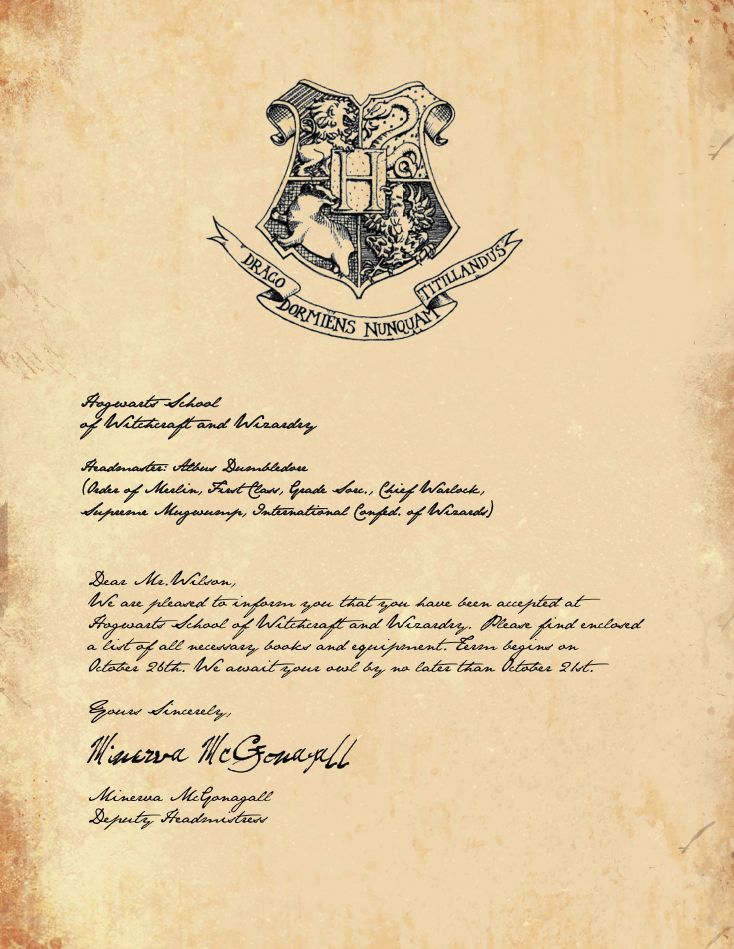 H
DRACO DORMIENS NUNQUAM TITILLANDUS
Hogwarts School
of Witchcraft and Wizardry
Headmaster: Albus Dumbledore
(Order of Merlin, First Class, Grade Sorc., Chief Warlock,
Supreme Mugwump, International Confed. of Wizards)
Dear Mr.Wilson,
We are pleased to inform you that you have been accepted at
Hogwarts School of Witchcraft and Wizardry. Please find enclosed
a list of all necessary books and equipment. Term begins on
October 26th. We await your owl by no later than October 21st.
Yours Sincerely,
Minerva McGonagall
Minerva McGonagall
Deputy Headmistress